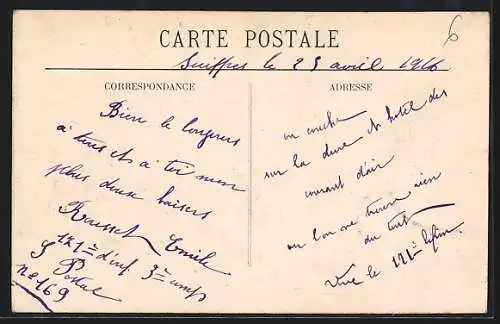 CARTE POSTALE
6
Suippes le 25 avril 1916
CORRESPONDANCE
Bien le
à tous et à toi mon
plus doux baisers
Rousset Emile
121e d'inf 3e comp
S Postal
no 169
ADRESSE
on couche
sur la dure hotel des
courant d'air
ou l'on ne trouve rien
du tout
Vive le 121e